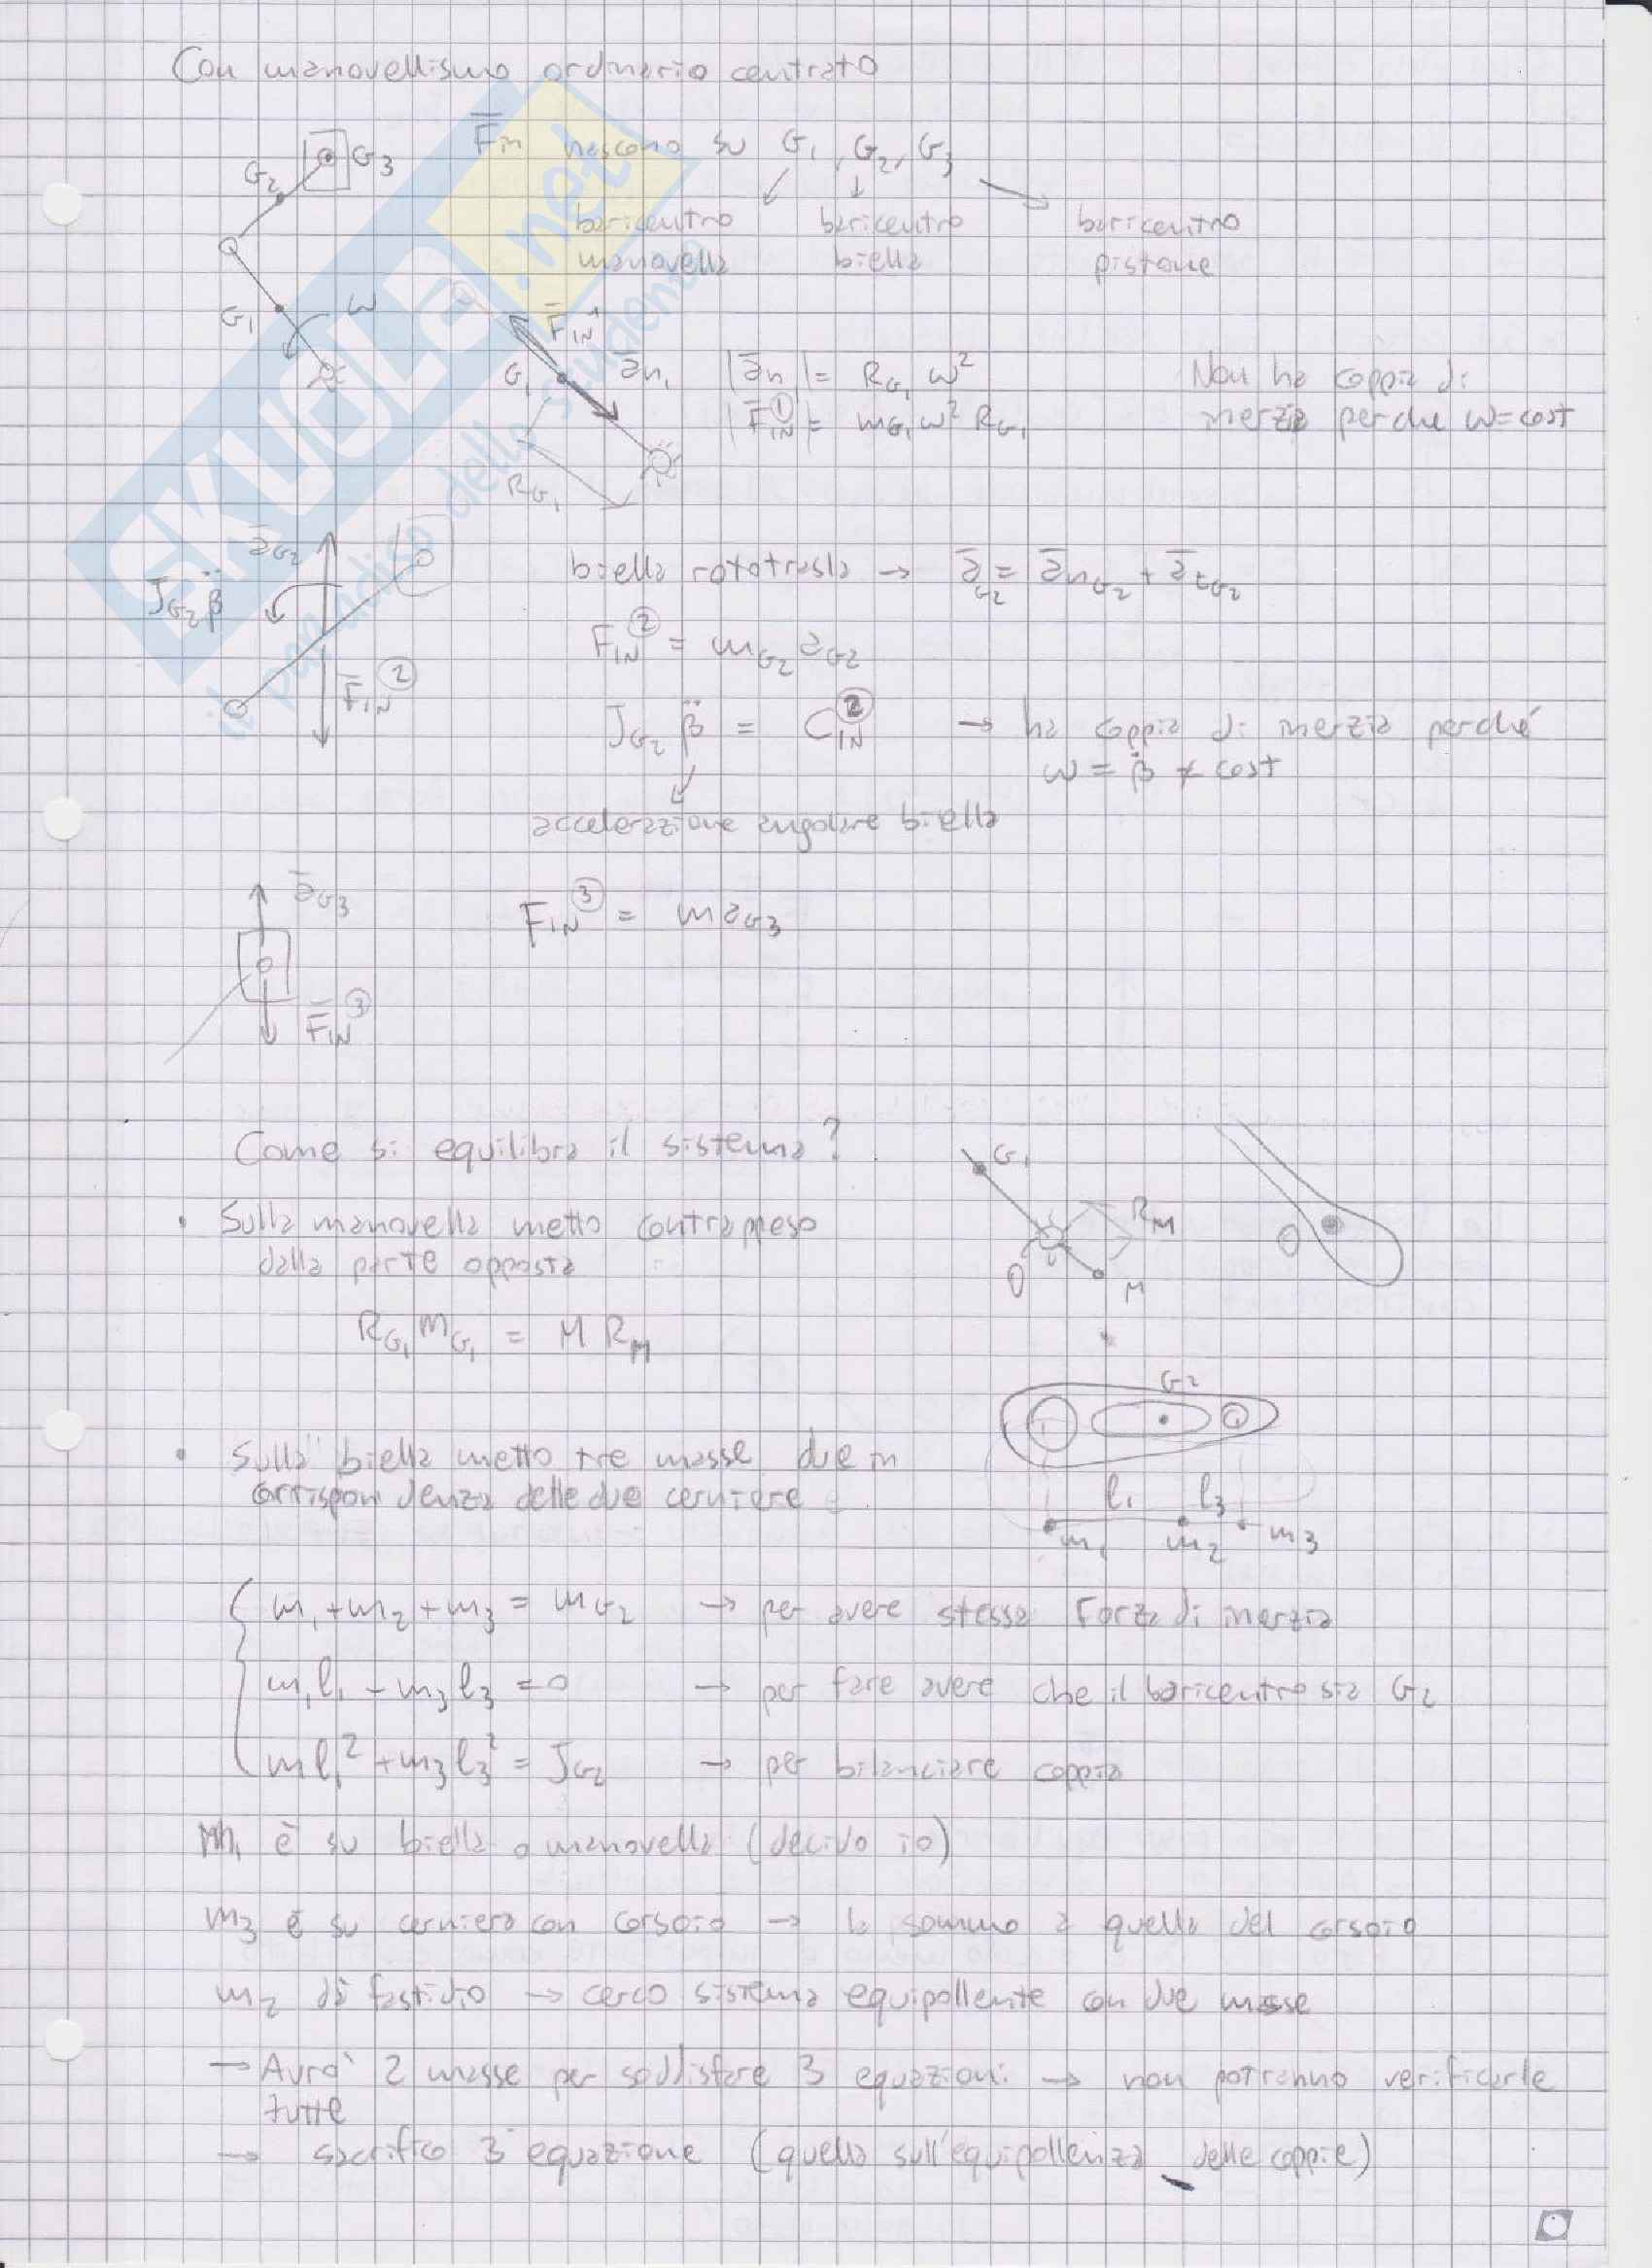 Con manovellismo ordinario centrato
G2 G3
F̄in nascono su G1, G2, G3
baricentro manovella
baricentro biella
baricentro pistone
G1 ω
F̄IN①
G1 ān1 |ān| = RG1 ω²
|F̄IN①| = mG1 ω² RG1
RG1
Non ha coppia di
inerzia perche ω=cost
āG2
JG2 β̈
F̄IN②
biella rototrasla → āG2 = ānG2 + ātG2
FIN② = mG2 aG2
JG2 β̈ = CIN② → ha coppia di inerzia perché
ω = β̇ ≠ cost
accelerazione angolare biella
āG3
FIN③ = maG3
F̄IN③
Come si equilibra il sistema?
G1
RM
O
M
O
• Sulla manovella metto contrappeso
dalla parte opposta
RG1 mG1 = M RM
G2
• Sulla biella metto tre masse due in
corrispondenza delle due cerniere
l1 l3
m1 m2 m3
m1+m2+m3 = mG2 → per avere stessa Forza di inerzia
m1l1 - m3l3 = 0 → per fare avere che il baricentro sia G2
ml1² + m3l3² = JG2 → per bilanciare coppia
m1 è su biella o manovella (decido io)
m3 è su cerniera con corsoio → la sommo a quella del corsoio
m2 dà fastidio → cerco sistema equipollente con due masse
→ Avrò 2 masse per soddisfare 3 equazioni → non potranno verificarle
tutte
→ sacrifico 3 equazione (quella sull'equipollenza delle coppie)
SKUOLA.net
il paradiso dello studente